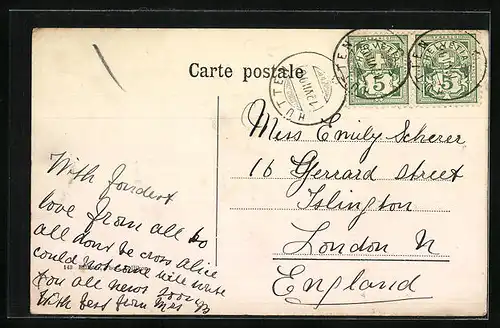 Carte postale
HÜTTEN
HELVETIA
5
HELVETIA
5
Miss Emily Scherer
16 Gerrard Street
Islington
London N
England
With fondest
love from all to
all dont be cross alice
could not come will write
you all news soon
With best from